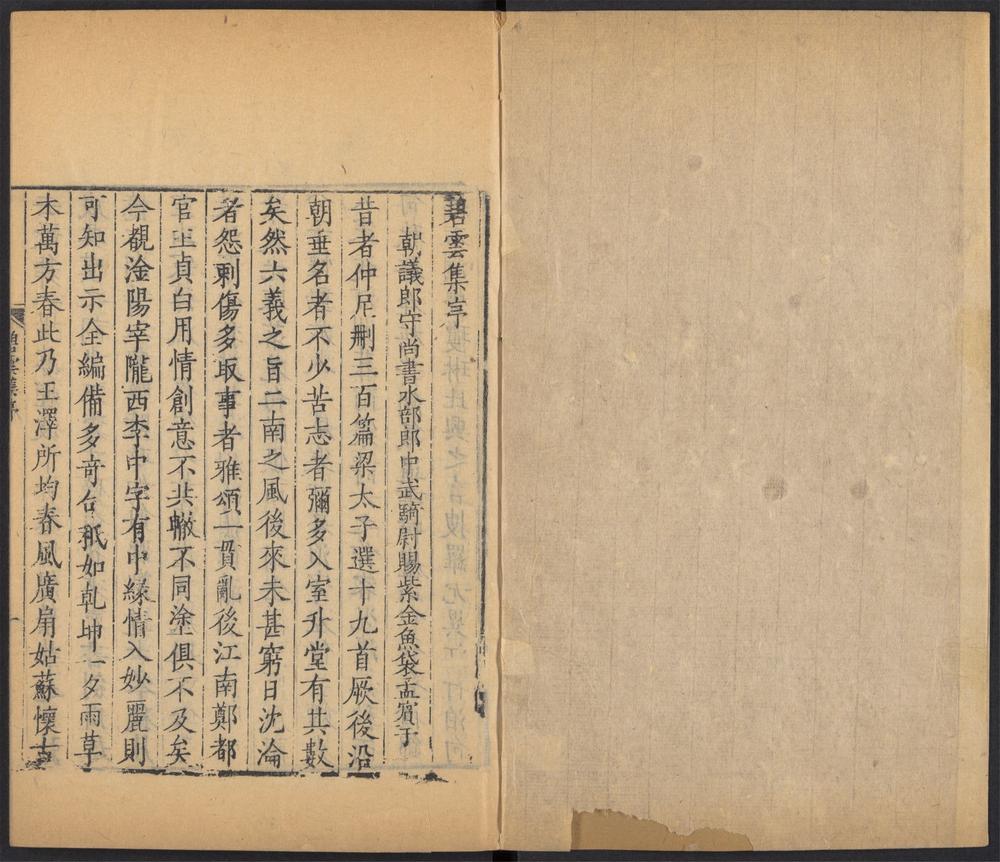 碧雲集序
朝議郎守尚書水部郎中武騎尉賜紫金魚袋孟賓于
昔者仲尼刪三百篇梁太子選十九首厥後沿
朝垂名者不少苦志者彌多入室升堂有其數
矣然六義之旨二南之風後來未甚窮日沈淪
者怨刺傷多取事者雅頌一貫亂後江南鄭都
官王貞白用情創意不共轍不同塗俱不及矣
今覩淦陽宰隴西李中字有中緣情入妙麗則
可知出示全編備多竒句秖如乾坤一夕雨草
木萬方春此乃王澤所均春風廣扇姑蘇懷古
碧雲集序